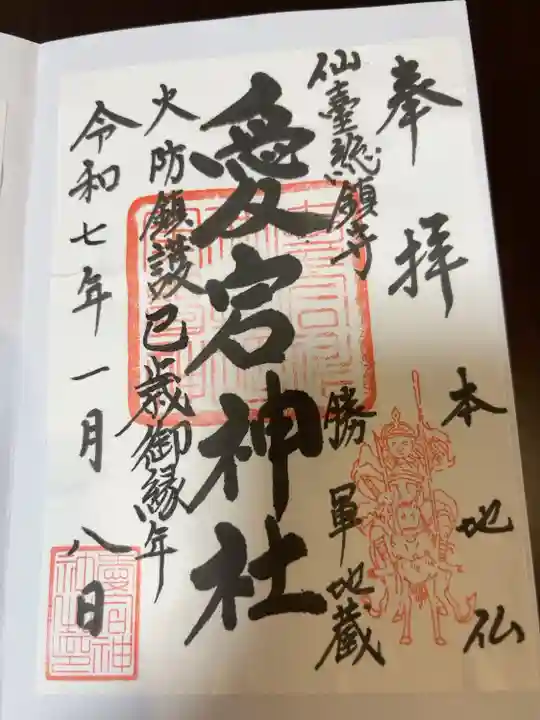 奉拝
本地仏
仙臺總鎮守
勝軍地蔵
愛宕神社
火防鎮護巳歳御縁年
令和七年一月八日